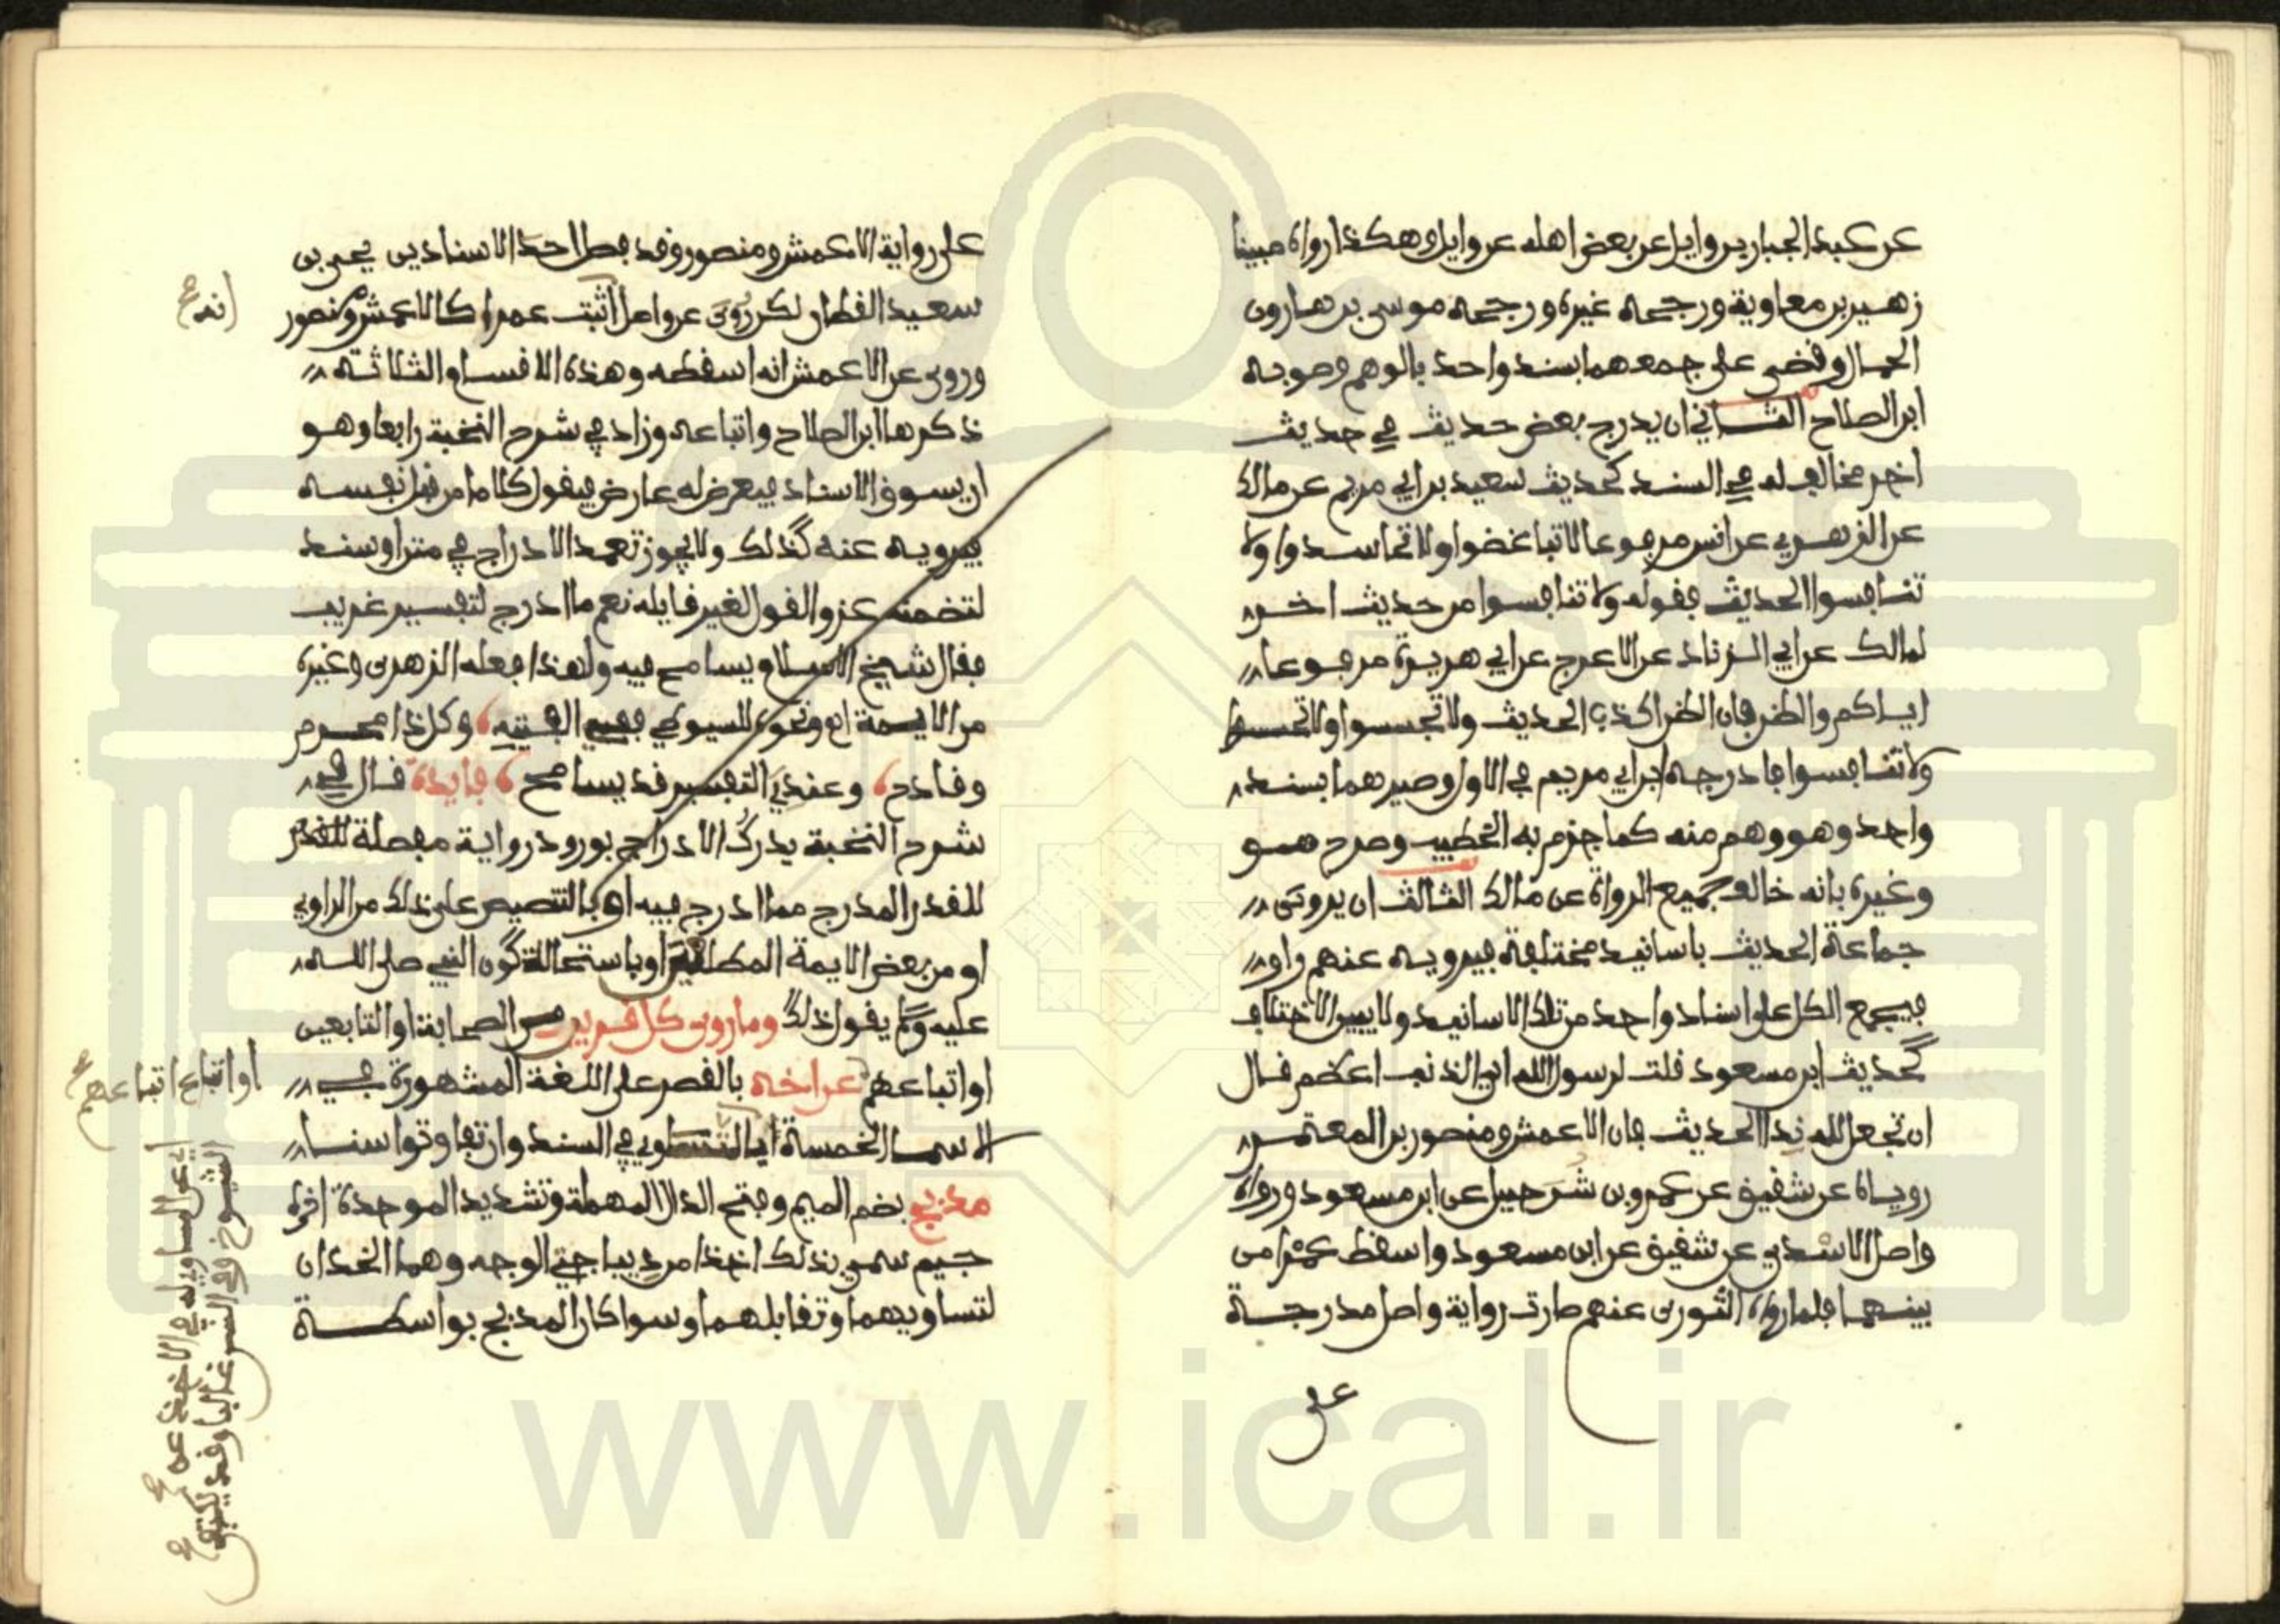 عن عبد الجبار بن وايل عن بعض اهله عن وايل وهكذا رواه مبينا
زهير بن معاوية ورجحه غيره ورجحه موسى بن هارون
الحمال وقضى على جمعهما بسند واحد بالوهم وصوبه
ابن الصلاح الثاني ان يدرج بعض حديث في حديث
اخر مخالف له في السند كحديث سعيد بن ابي مريم عن مالك
عن الزهري عن انس مرفوعا لا تباغضوا ولا تحاسدوا ولا
تنافسوا الحديث فقوله ولا تنافسوا من حديث اخر
لمالك عن ابي الزناد عن الاعرج عن ابي هريرة مرفوعا
اياكم والظن فان الظن اكذب الحديث ولا تجسسوا ولا تحسسوا
ولا تنافسوا فادرجه ابن ابي مريم في الاول وصيرهما بسند
واحد وهو وهم منه كما جزم به الخطيب وصرح هو
وغيره بانه خالف جميع الرواة عن مالك الثالث ان يروى
جماعة الحديث باسانيد مختلفة فيرويه عنهم راو
فيجمع الكل على اسناد واحد من تلك الاسانيد ولا يبين الاختلاف
كحديث ابن مسعود قلت لرسول الله اي الذنب اعظم قال
ان تجعل لله ندا الحديث فان الاعمش ومنصور بن المعتمر
روياه عن شقيق عن عمرو بن شرحبيل عن ابن مسعود ورواه
واصل الاسدي عن شقيق عن ابن مسعود واسقط عمرا من
بينهما فلما رواه الثوري عنهم صارت رواية واصل مدرجة
على
على رواية الاعمش ومنصور وقد فصل احد الاسنادين يحيى بن
سعيد القطان لكن روي عن واصل اثبت عمرا كالاعمش ومنصور
انه صح
وروي عن الاعمش انه اسقطه وهذه الاقسام الثلاثة
ذكرها ابن الصلاح واتباعه وزاد في شرح النخبة رابعا وهو
ان يسوق الاسناد فيعرض له عارض فيقول كلاما من قبل نفسه
فيرويه عنه كذلك ولا يجوز تعمد الادراج في متن او سند
لتضمنه عزو القول لغير قايله نعم ما ادرج لتفسير غريب
فقال شيخ الاسلام يسامح فيه ولهذا فعله الزهري وغيره
من الايمة اه ونحوه للسيوطي ففي الفيته وكل ذا محرم
وقادح وعندي التفسير قد يسامح فايدة قال في
شرح النخبة يدرك الادراج بورود رواية مفصلة للقدر
للقدر المدرج مما ادرج فيه او بالتنصيص على ذلك من الراوي
او من بعض الايمة المطلعين او باستحالة كون النبي صلى الله
عليه وسلم يقول ذلك وما روى كل قرين من الصحابة او التابعين
او اتباعهم عن اخه بالقصر على اللغة المشهورة في
او اتباع اتباعهم صح
الاسما الخمسة اي المتساوي في السند وان تفاوتوا سنا
اي عن المساوي له في الاخذ عن
الشيوخ وفي السن غالبا وقد يكتفي
مدبج بضم الميم وفتح الدال المهملة وتشديد الموحدة اخره
جيم سمي بذلك اخذا من ديباجتي الوجه وهما الخدان
لتساويهما وتقابلهما وسوا كان المدبج بواسطة
www.ical.ir